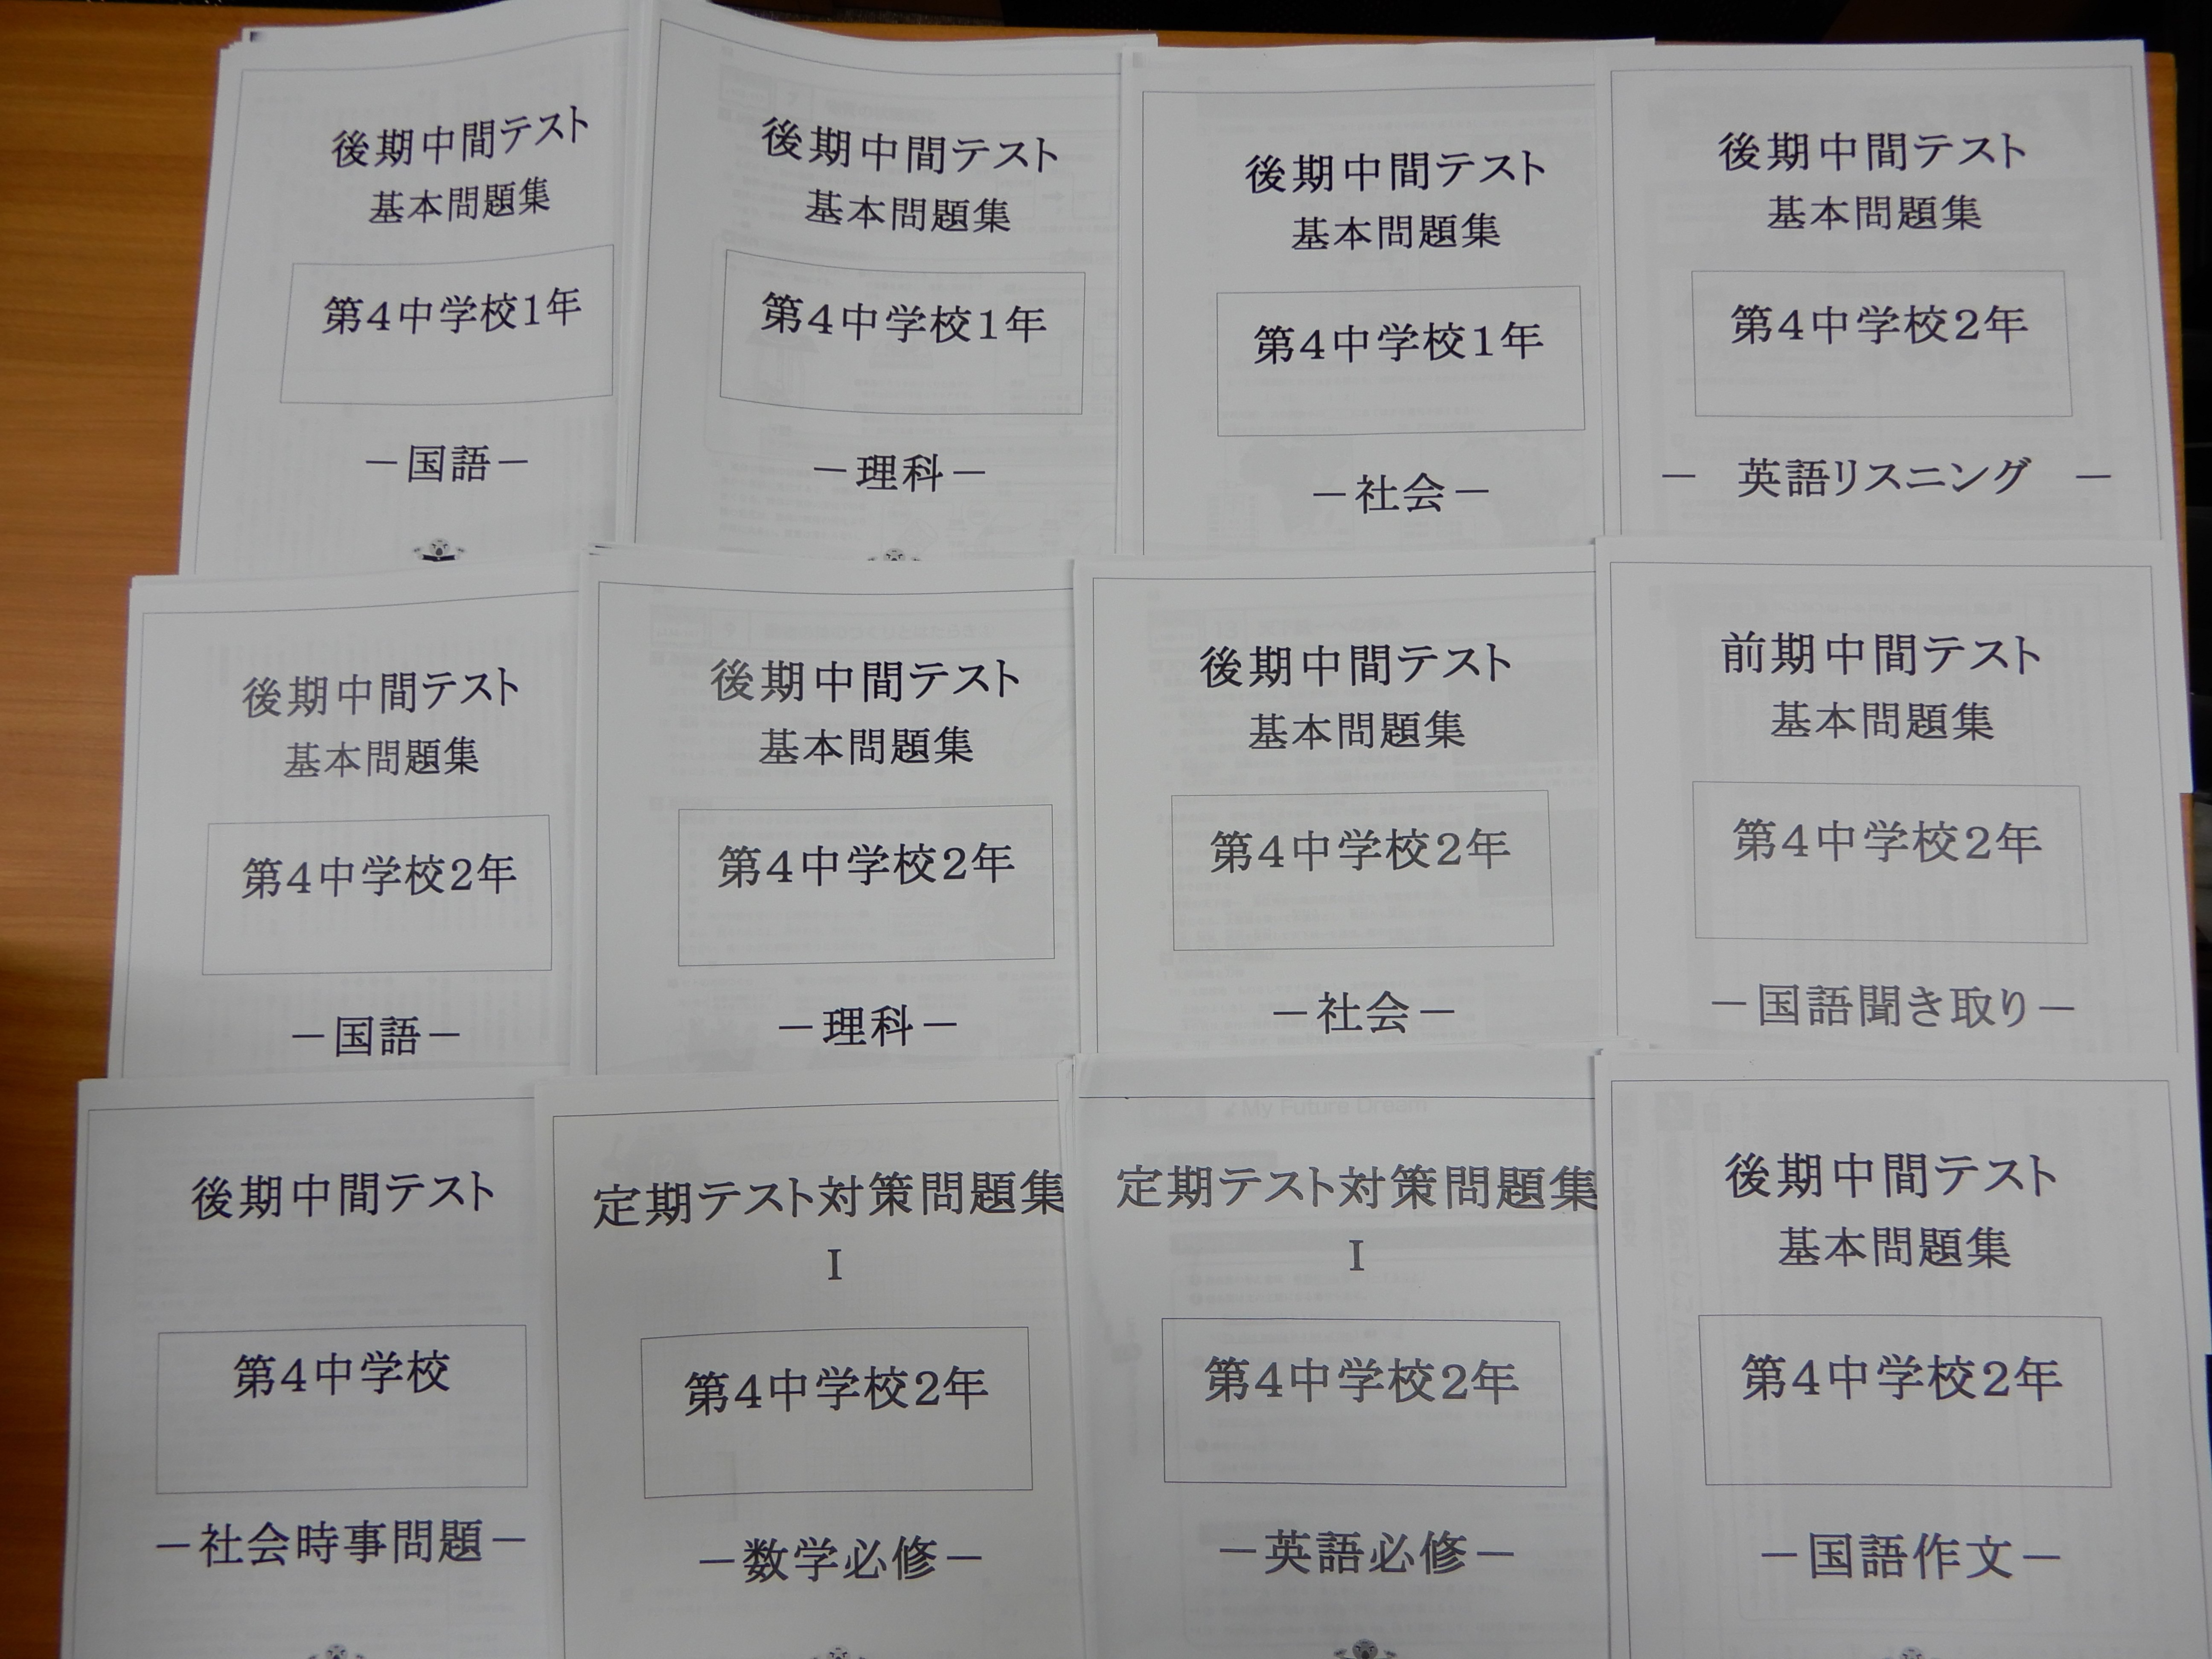 後期中間テスト
基本問題集
第4中学校1年
－国語－
後期中間テスト
基本問題集
第4中学校1年
－理科－
後期中間テスト
基本問題集
第4中学校1年
－社会－
後期中間テスト
基本問題集
第4中学校2年
－ 英語リスニング －
後期中間テスト
基本問題集
第4中学校2年
－国語－
後期中間テスト
基本問題集
第4中学校2年
－理科－
後期中間テスト
基本問題集
第4中学校2年
－社会－
前期中間テスト
基本問題集
第4中学校2年
－国語聞き取り－
後期中間テスト
第4中学校
－社会時事問題－
定期テスト対策問題集
I
第4中学校2年
－数学必修－
My Future Dream
定期テスト対策問題集
I
第4中学校2年
－英語必修－
後期中間テスト
基本問題集
第4中学校2年
－国語作文－